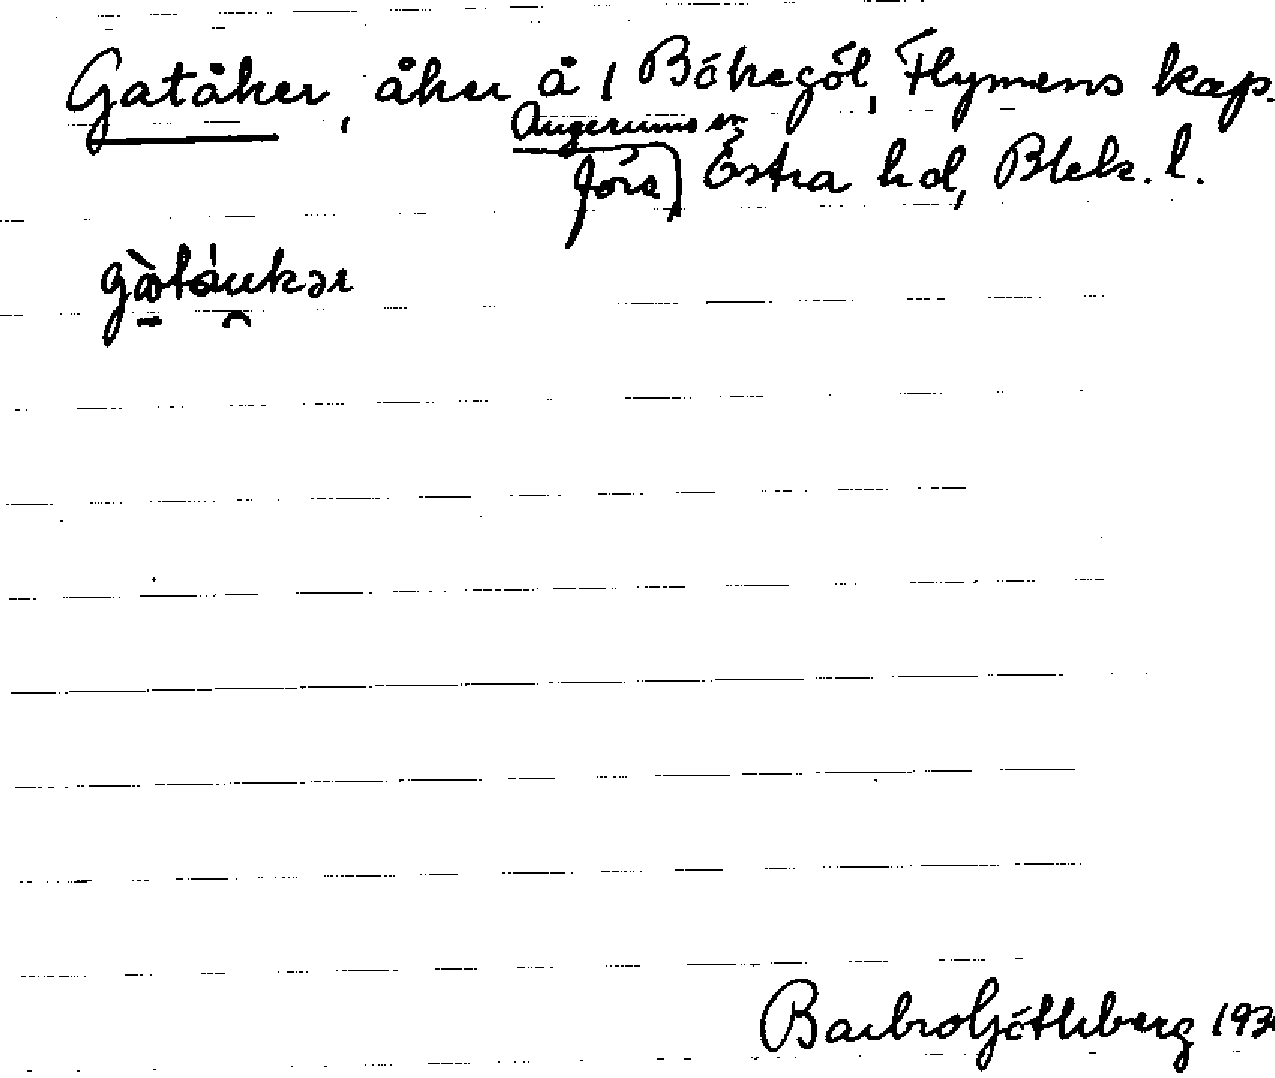 Gatåker, åker å 1 Bökegöl, Flymens kap.
Augerums sn
förs) Östra hd, Blek. l.
Barbro Göthberg 193